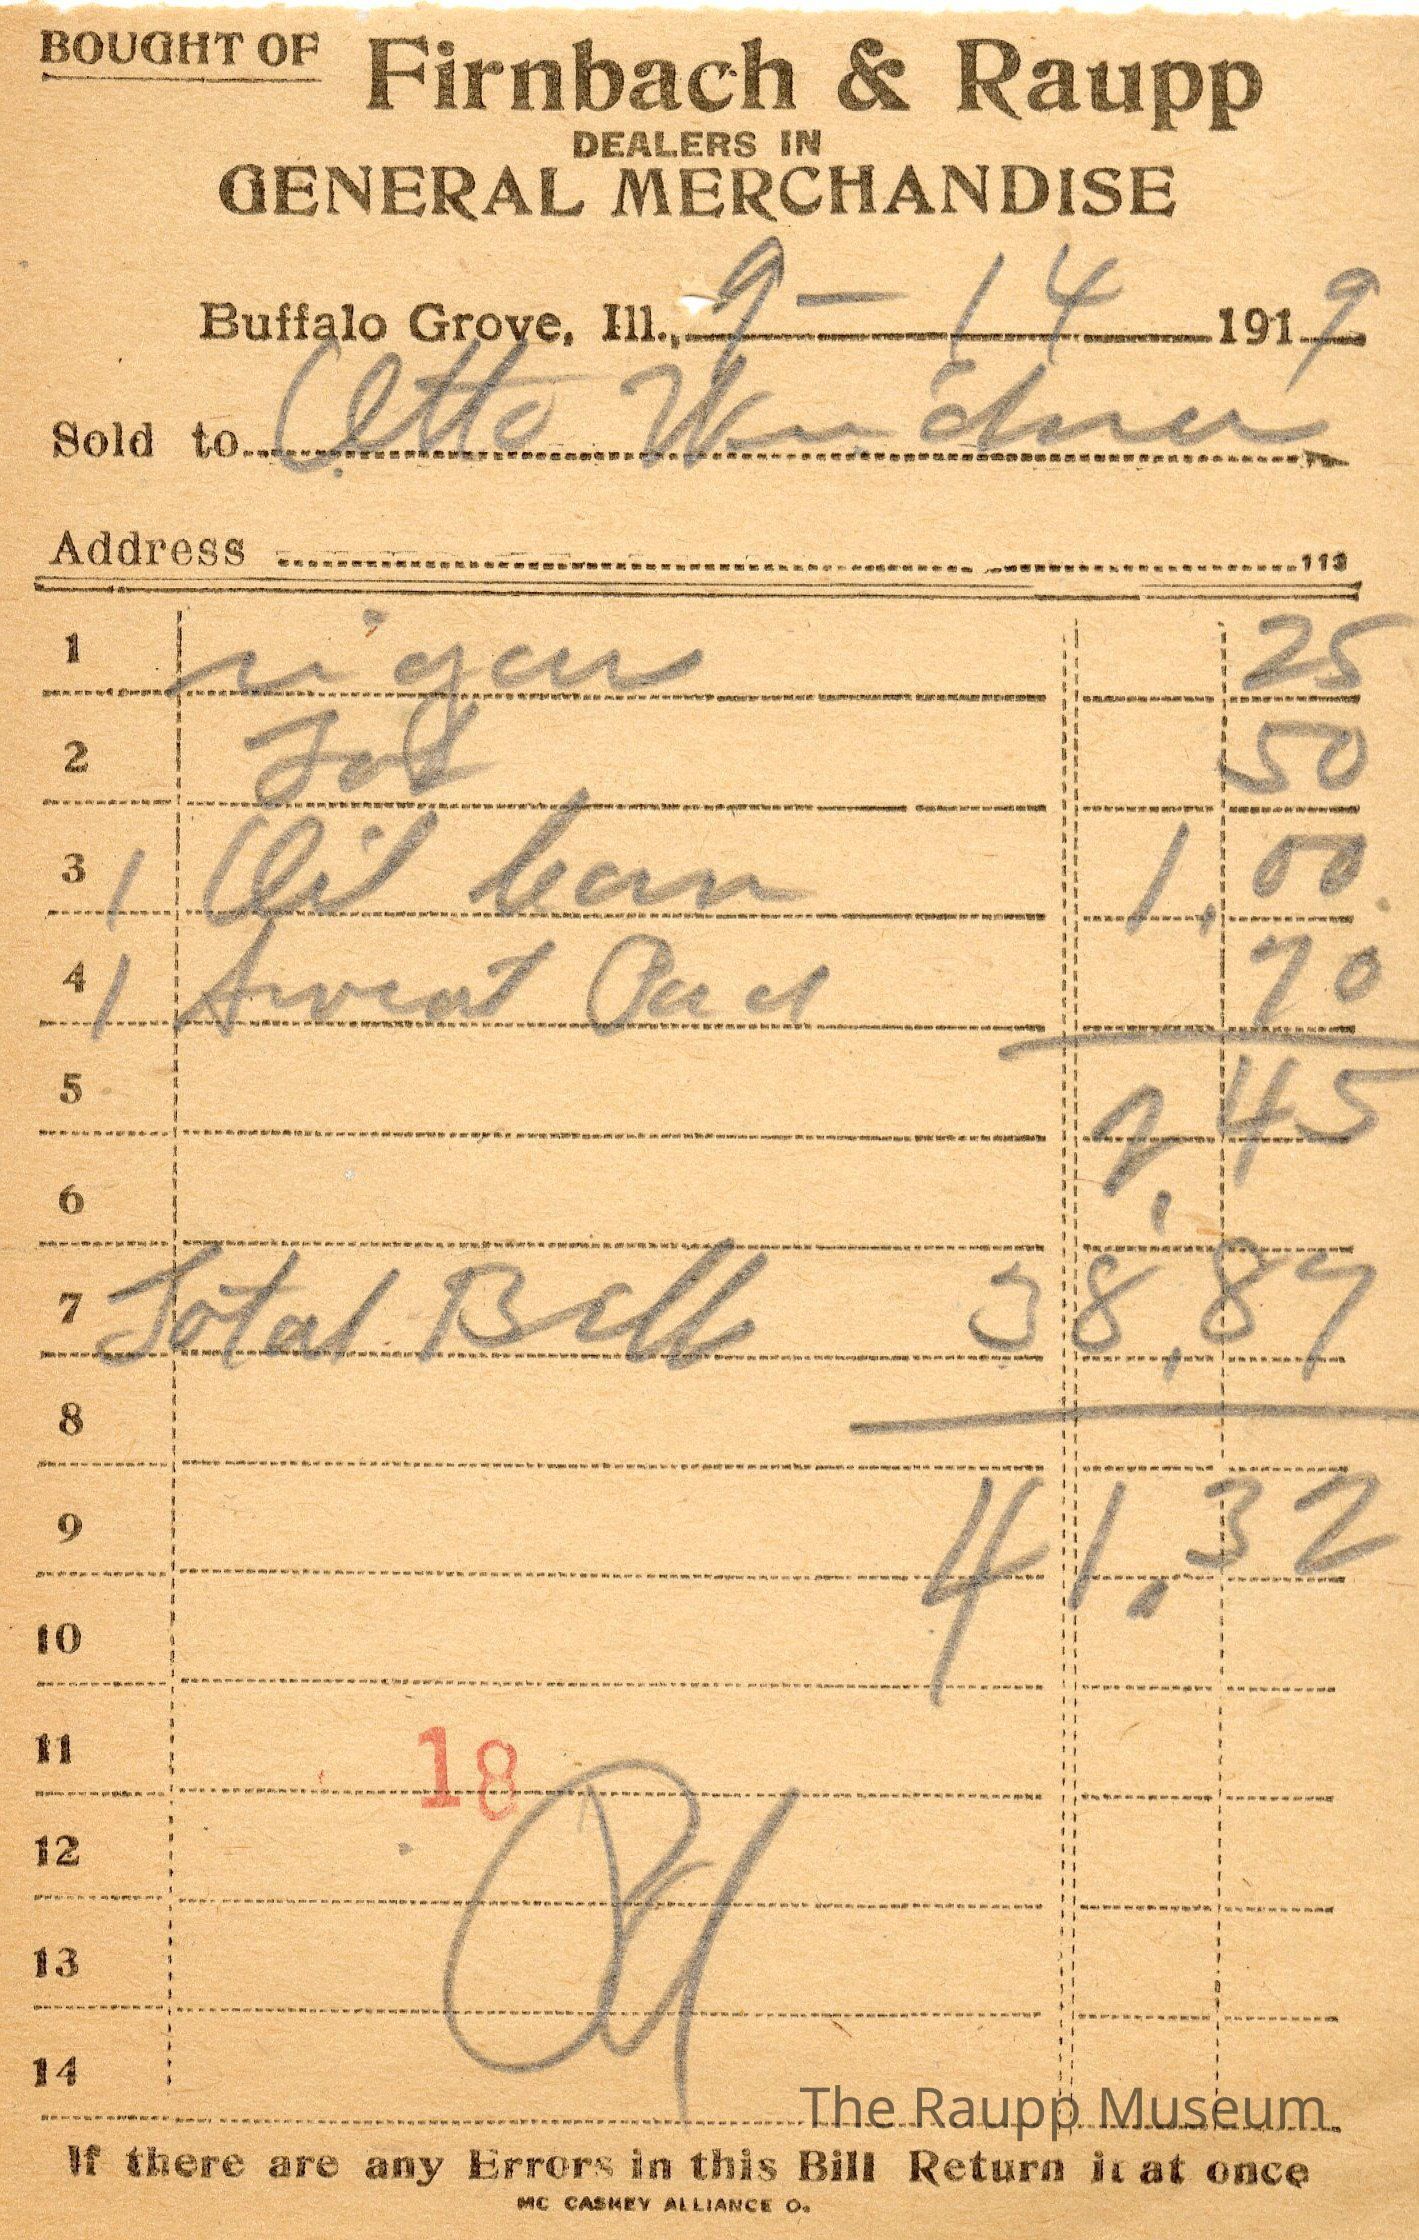 BOUGHT OF Firnbach & Raupp
DEALERS IN
GENERAL MERCHANDISE
Buffalo Grove, Ill., 9 - 14 1919
Sold to Otto
Address 113
1 25
2 50
3 1 Oil Can 1.00
4 1 Sweat Pad 70
5 2.45
6
7 Total Bill 38.87
8
9 41.32
10
11 18
12
13
14
The Raupp Museum
If there are any Errors in this Bill Return it at once
MC CASKEY ALLIANCE O.